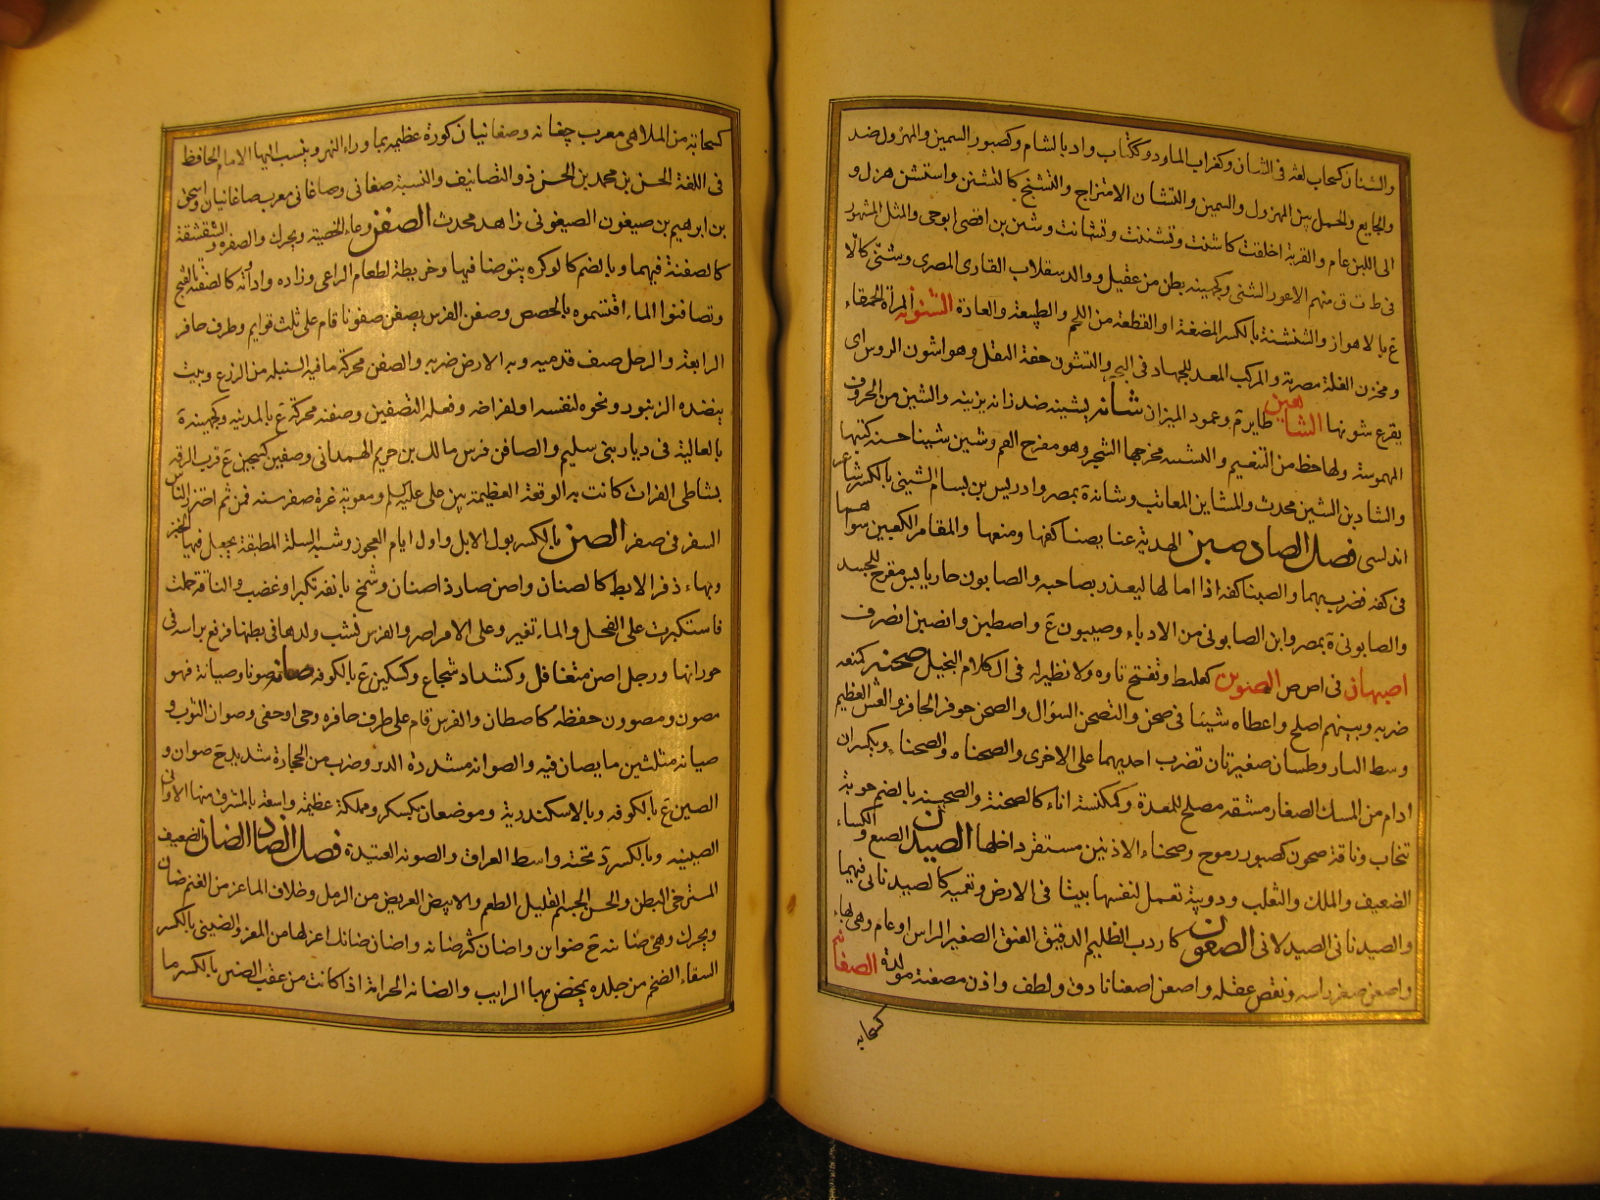 والشنان كسحاب لغة فى الشنان وكغراب الماء ود وككتاب واد بالشام وكصبور السمين والمهزول ضد
والجايع والحمل بين المهزول والسمين والتشان الامتزاج والتشنج كالتشنن واستشن هزل و
الى اللبن عام والقربة اخلقت كاشنت وتشننت وتشانت وشن بن افصى ابو حى والمثل المشهور
فى ط ب ق منهم الاعور الشنى وكجهينه بطن من عقيل ووالد سقلاب القارى المصرى وشنى كالا
ع بالاهواز والشنشنة بالكسر المضغة او القطعة من اللحم والطبيعة والعادة الشنونة المراة الحمقاء
ومخزن الغلة مصرية والمركب المعد للجهاد فى البحر والتشون خفة العقل وهو اشون الروس اى
يفرع شونها الشاهين طاير م وعمود الميزان شانه يشينه ضد زانه يزينه والشين من الحروف
المهموسة ولها حظ من التنغيم مخرجها الشجر وهو مفرج الفم وشين شينا حسنه كتبها
والشاد بن الشين محدث والمشاين المعايب وشانة ة بمصر وادريس بن بسام الشينى بالكسر شاعر
اندلسى فصل الصاد صبن الهدية عنا يصبنا كفها ومنعها والمقامر الكعبين سواهما
فى كفه فضرب بهما والصبنا كفه اذا امالها ليغدر بصاحبه والصابون حار يابس مفرح للجسد
والصابونى ة بمصر وابن الصابونى من الادباء وصيبون ع واصطبن وانصبن انصرف
اصبهان فى ا ص ص الصنوبن كعلبط وتفتح تاوه ولا نظير له فى الكلام البخيل صحنه كمنعه
ضربه وبينهم اصلح واعطاه شينا فى صحن والتصحن السؤال والصحن جوف الحافر والعس العظيم
وسط الدار وطسان صغيرتان تضرب احديهما على الاخرى والصحناه والصحناء ويكسران
ادام من السمك الصغار مشتهه مصلح للمعدة وكمكنسة اناء كالصحنة والصحينه بالضم جوبة
تنجاب وناقة صحون كصبور رموح وصحناء الاذنين مستقر داخلها الصيدن الضبع والكساء
الضعيف والملك والثعلب ودويبة تعمل لنفسها بيتا فى الارض وتعميه كالصيدنانى فيهما
والصيدنانى الصيدلانى الصعون كاردب الظليم الدقيق العنق الصغير الراس او عام وهى بهاء
واصعن صغر راسه ونقص عقله واصعن اصعنانا دق ولطف واذن مصعنة مولدة الصغانة
كسحابه
كسحابة من الملاهى معرب چغانه وصغانيان كورة عظيمه بما وراء النهر وينسب اليها الامام الحافظ
فى اللغة الحسن بن محمد بن الحسن ذو التصانيف والنسبة صغانى وصاغانى معرب صاغانيان واسحق
بن ابرهيم بن صيغون الصيغونى زاهد محدث الصفن وعاء الخصية ويحرك والصفره والشقشقة
كالصفنة فيهما وبالضم كالوكره يتوضا فيها وخريطة لطعام الراعى وزاده واداته كالصفنة بالفتح
وتصافنوا الماء اقتسموه بالحصص وصفن الفرس يصفن صفونا قام على ثلث قوايم وطرف حافر
الرابعة والرجل صف قدميه وبه الارض ضربه والصفن محركة ما فيه السنبلة من الزرع وبيت
ينضده الزنبور ونحوه لنفسه او لفراخه وفعله التصفين وصفنه محركة ع بالمدينه وكجهينة ة
بالعالية فى ديار بنى سليم والصافن فرس مالك بن حريم الهمدانى وصفين كسجين ع قرب الرقه
بشاطى الفرات كانت به الوقعة العظيمة بين على عليه السلم ومعوية غرة صفر سنه فمن ثم احترز الناس
السفر فى صفر الصن بالكسر بول الابل واول ايام العجوز وشبه السلة المطبقة يجعل فيها الخبز
وبهاء ذفر الابط كالصنان واصن صار ذا صنان وشمخ بانفه تكبرا وغضب والناقة حملت
فاستكبرت على الفحل والماء تغير وعلى الامر اصر والفرس نشب ولدها فى بطنها فرفع براسه فى
خورانها ورجل اصن متغافل وكشداد شجاع وكسكين ع بالكوفه صانه صونا وصيانة فهو
مصون ومصوون حفظه كاصطان والفرس قام على طرف حافره وجى او حفى وصوان الثوب و
صيانه مثلثين ما يصان فيه والصوانه مشددة الدبر وضرب من الحجارة شديد ج صوان و
الصين ع بالكوفه وبالاسكندرية وموضعان بكسكر ومملكة عظيمة واسعة بالمشرق منها الاوانى
الصينيه وبالكسر ة تحت واسط العراق والصونه العتيدة فصل الضاد الضان الضعيف
المسترخى البطن والحسن الجسم القليل الطعم والابيض العريض من الرمل وخلاف الماعز من الغنم ضان
ويحرك وهى ضائنه ج ضوائن واضان كثر ضانه واضان ضانك اعزلها من المعز والضينى بالكسر
السقاء الضخم من جلده يمخض بها الرايب والضانه الخزامة اذا كانت من عقب الضبن بالكسر ما